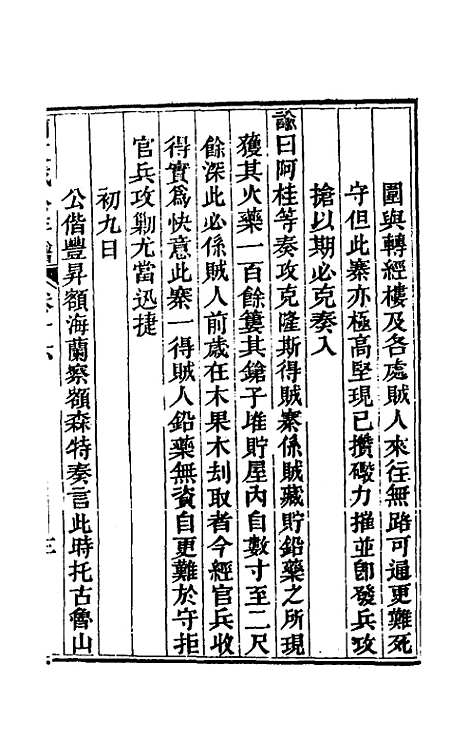 圍與轉經樓及各處賊人來往無路可通更難死
守但此寨亦極高堅現已攢礮力摧並卽發兵攻
搶以期必克奏入
諭曰阿桂等奏攻克隆斯得賊寨係賊藏貯鉛藥之所現
獲其火藥一百餘簍其鎗子堆貯屋內自數寸至二尺
餘深此必係賊人前歲在木果木刦取者今經官兵收
得實爲快意此寨一得賊人鉛藥無資自更難於守拒
官兵攻剿尤當迅捷
初九日
公偕豐昇額海蘭察額森特奏言此時托古魯山